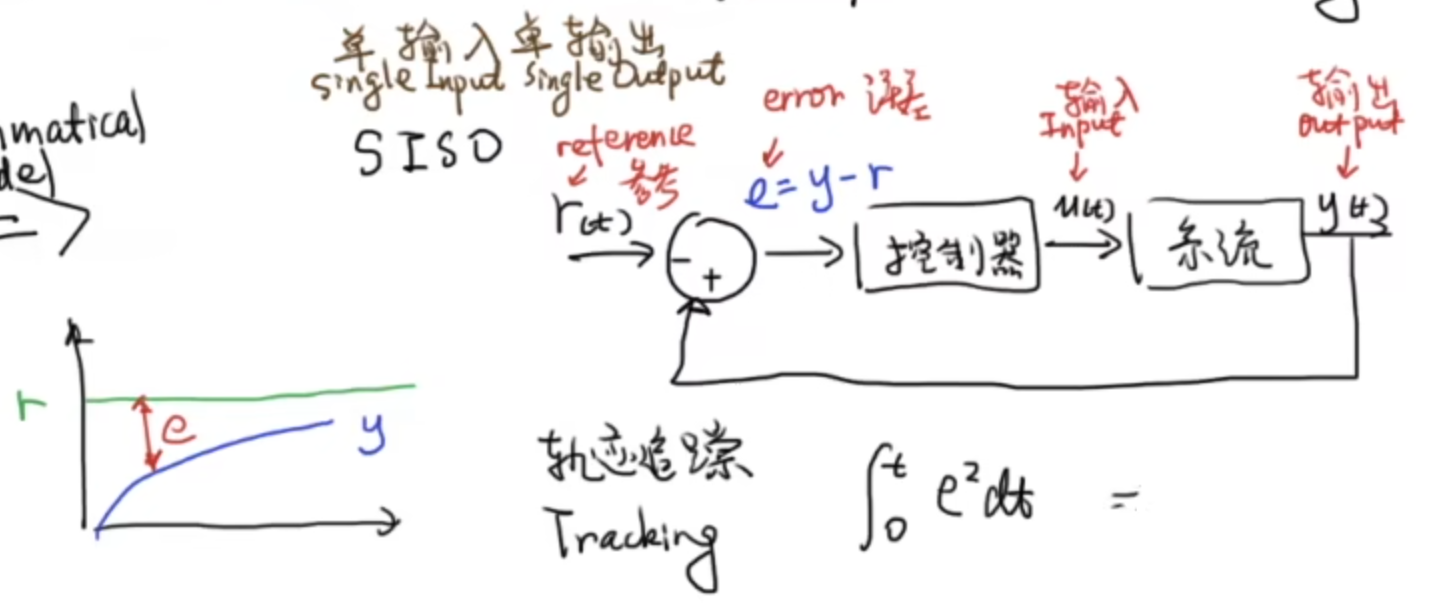 单输入单输出
Single Input Single Output
SISO
mmatical
del
reference
参考
r(t)
error 误差
e = y - r
- +
控制器
输入
Input
u(t)
系统
输出
output
y(t)
r
e
y
轨迹追踪
Tracking
∫₀ᵗ e²dt =